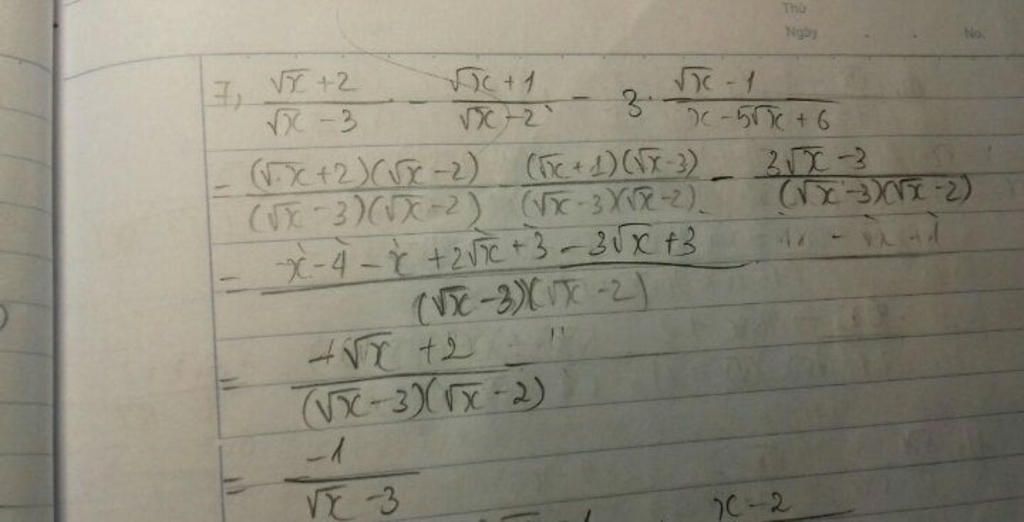 Thứ
Ngày . . No.
7, (√x + 2)/(√x - 3) - (√x + 1)/(√x - 2) - 3 · (√x - 1)/(x - 5√x + 6)
= ((√x + 2)(√x - 2))/((√x - 3)(√x - 2)) - ((√x + 1)(√x - 3))/((√x - 3)(√x - 2)) - (3√x - 3)/((√x - 3)(√x - 2))
= (x - 4 - x + 2√x + 3 - 3√x + 3)/((√x - 3)(√x - 2))
= (-√x + 2)/((√x - 3)(√x - 2))
= (-1)/(√x - 3)
x - 2